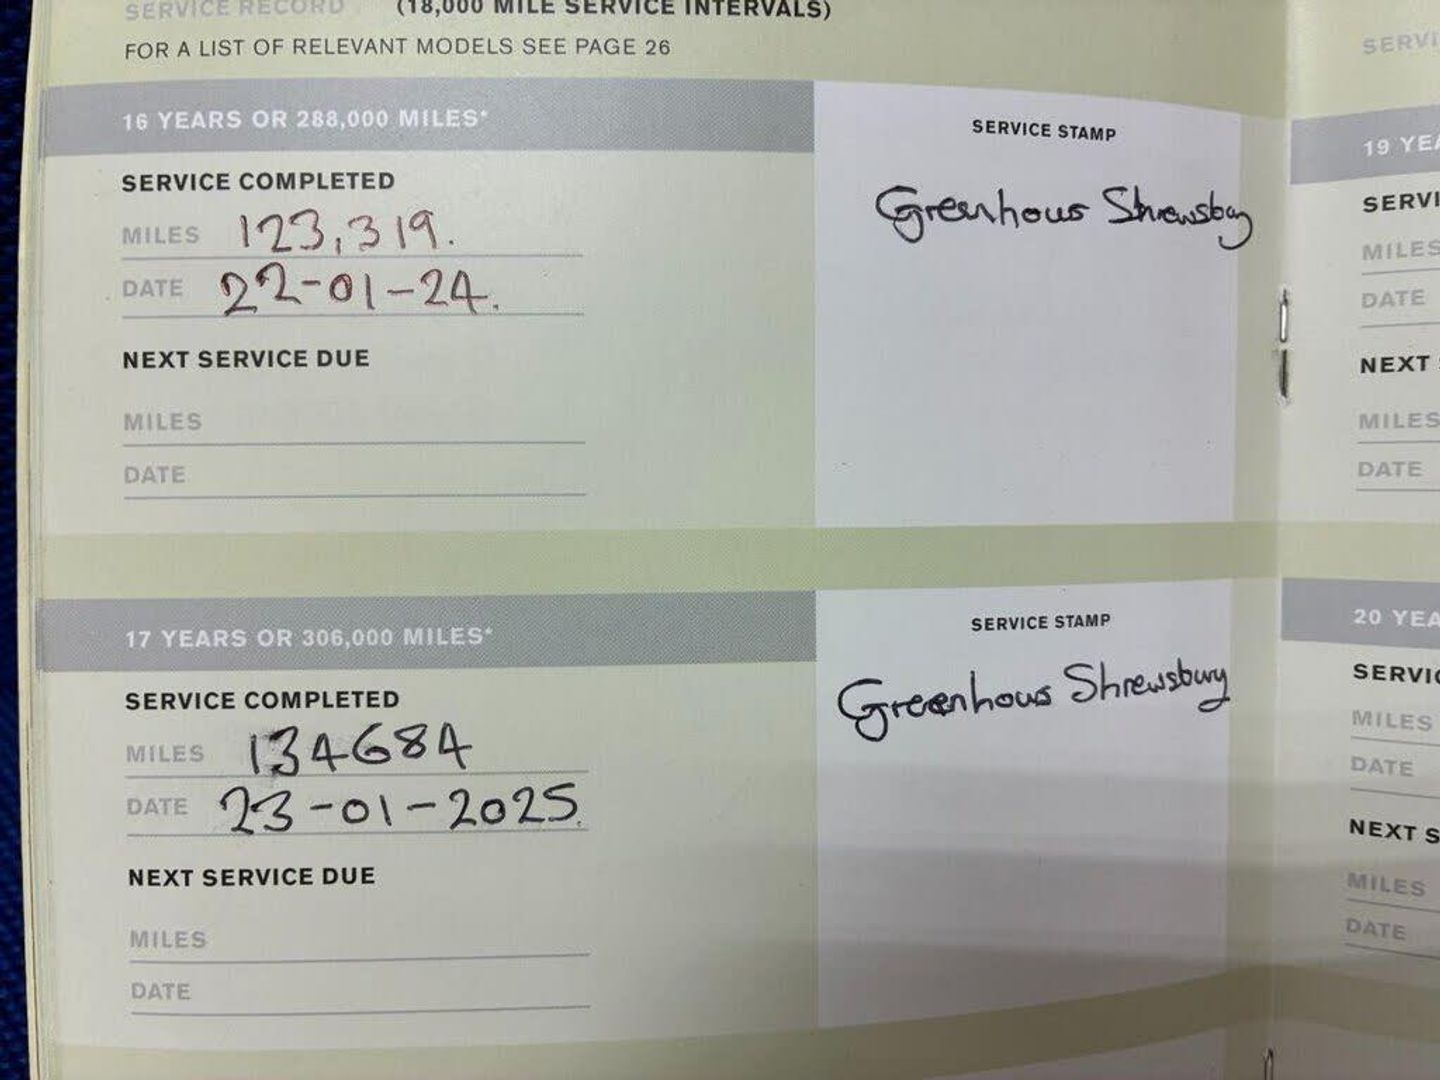 SERVICE RECORD (18,000 MILE SERVICE INTERVALS)
FOR A LIST OF RELEVANT MODELS SEE PAGE 26
16 YEARS OR 288,000 MILES*
SERVICE COMPLETED
MILES 123,319.
DATE 22-01-24.
NEXT SERVICE DUE
MILES
DATE
SERVICE STAMP
Greenhous Shrewsbury
17 YEARS OR 306,000 MILES*
SERVICE COMPLETED
MILES 134684
DATE 23-01-2025.
NEXT SERVICE DUE
MILES
DATE
SERVICE STAMP
Greenhous Shrewsbury
SERVI
19 YEA
SERVI
MILES
DATE
NEXT
MILES
DATE
20 YEA
SERVIC
MILES
DATE
NEXT S
MILES
DATE